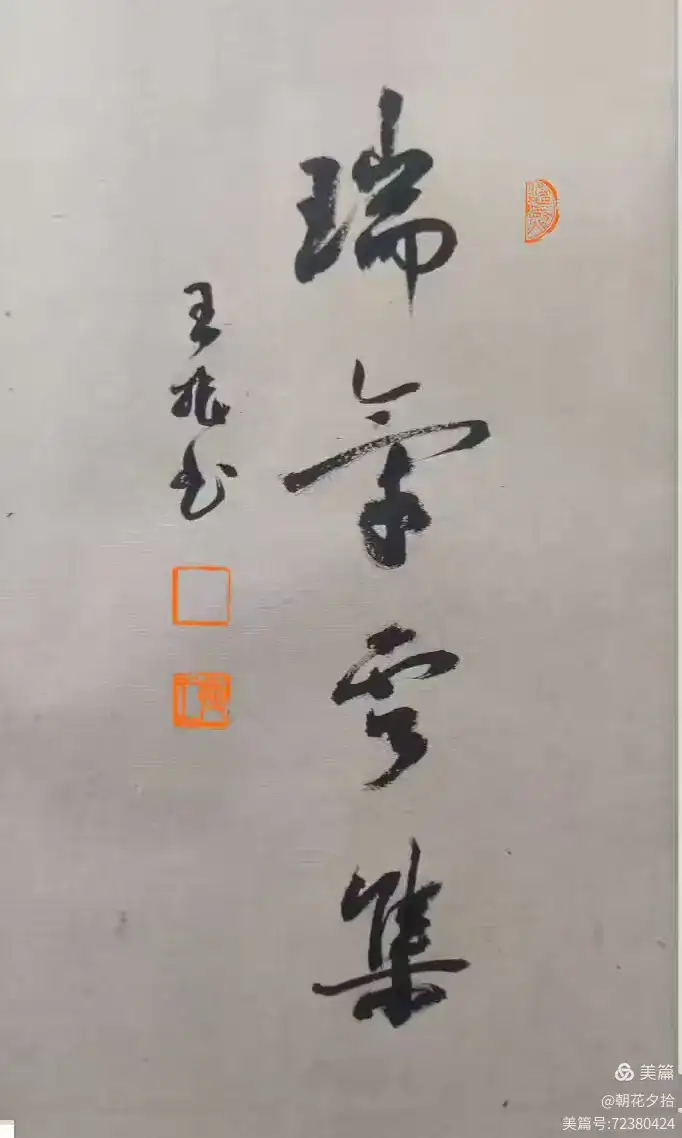 瑞氣雲集
王兆书
美篇
@朝花夕拾
美篇号:72380424